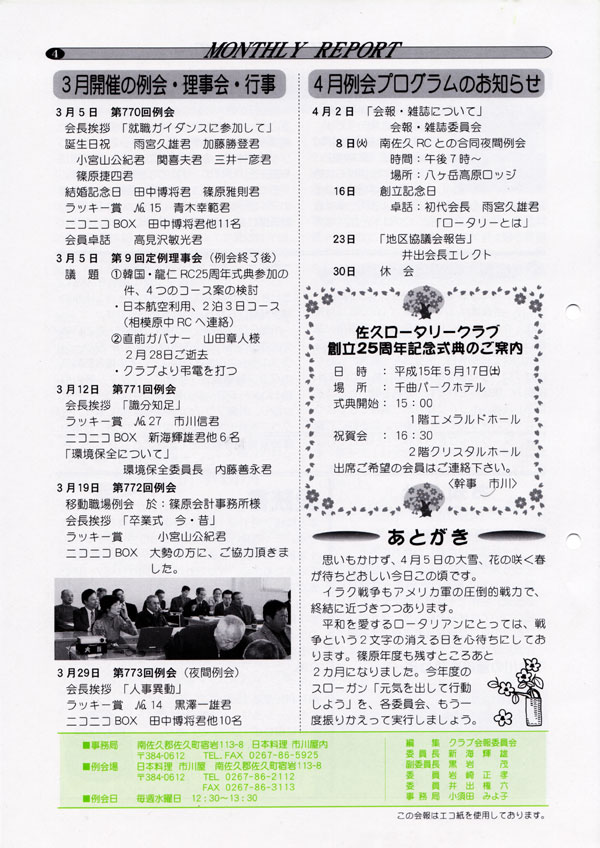 4
MONTHLY REPORT
3月開催の例会・理事会・行事
3月5日 第770回例会
会長挨拶 「就職ガイダンスに参加して」
誕生日祝 雨宮久雄君 加藤勝登君
小宮山公紀君 関喜夫君 三井一彦君
篠原捷四君
結婚記念日 田中博将君 篠原雅則君
ラッキー賞 №15 青木幸範君
ニコニコBOX 田中博将君他11名
会員卓話 高見沢敏光君
3月5日 第9回定例理事会(例会終了後)
議 題 ①韓国・龍仁RC25周年式典参加の
件、4つのコース案の検討
・日本航空利用、2泊3日コース
(相模原中RCへ連絡)
②直前ガバナー 山田章人様
2月28日ご逝去
・クラブより弔電を打つ
3月12日 第771回例会
会長挨拶 「識分知足」
ラッキー賞 №27 市川信君
ニコニコBOX 新海輝雄君他6名
「環境保全について」
環境保全委員長 内藤善永君
3月19日 第772回例会
移動職場例会 於:篠原会計事務所様
会長挨拶 「卒業式 今・昔」
ラッキー賞 小宮山公紀君
ニコニコBOX 大勢の方に、ご協力頂きま
した。
3月29日 第773回例会(夜間例会)
会長挨拶 「人事異動」
ラッキー賞 №14 黒澤一雄君
ニコニコBOX 田中博将君他10名
4月例会プログラムのお知らせ
4月2日 「会報・雑誌について」
会報・雑誌委員会
8日㈫ 南佐久RCとの合同夜間例会
時間:午後7時~
場所:八ヶ岳高原ロッジ
16日 創立記念日
卓話:初代会長 雨宮久雄君
「ロータリーとは」
23日 「地区協議会報告」
井出会長エレクト
30日 休 会
佐久ロータリークラブ
創立25周年記念式典のご案内
日 時 :平成15年5月17日㈯
場 所 :千曲パークホテル
式典開始:15:00
1階エメラルドホール
祝賀会 :16:30
2階クリスタルホール
出席ご希望の会員はご連絡下さい。
〈幹事 市川〉
あとがき
思いもかけず、4月5日の大雪、花の咲く春
が待ちどおしい今日この頃です。
イラク戦争もアメリカ軍の圧倒的戦力で、
終結に近づきつつあります。
平和を愛するロータリアンにとっては、戦
争という2文字の消える日を心待ちにしてお
ります。篠原年度も残すところあと
2カ月になりました。今年度の
スローガン「元気を出して行動
しよう」を、各委員会、もう一
度振りかえって実行しましょう。
■事務局 南佐久郡佐久町宿岩113-8 日本料理 市川屋内
〒384-0612 TEL.FAX 0267-86-5925
■例会場 日本料理 市川屋 南佐久郡佐久町宿岩113-8
〒384-0612 TEL 0267-86-2112
FAX 0267-86-3113
■例会日 毎週水曜日 12:30~13:30
編 集 クラブ会報委員会
委員長 新海輝雄
副委員長 黒岩 茂
委員 岩崎正孝
委員 井出権六
事務局 小須田みよ子
この会報はエコ紙を使用しております。